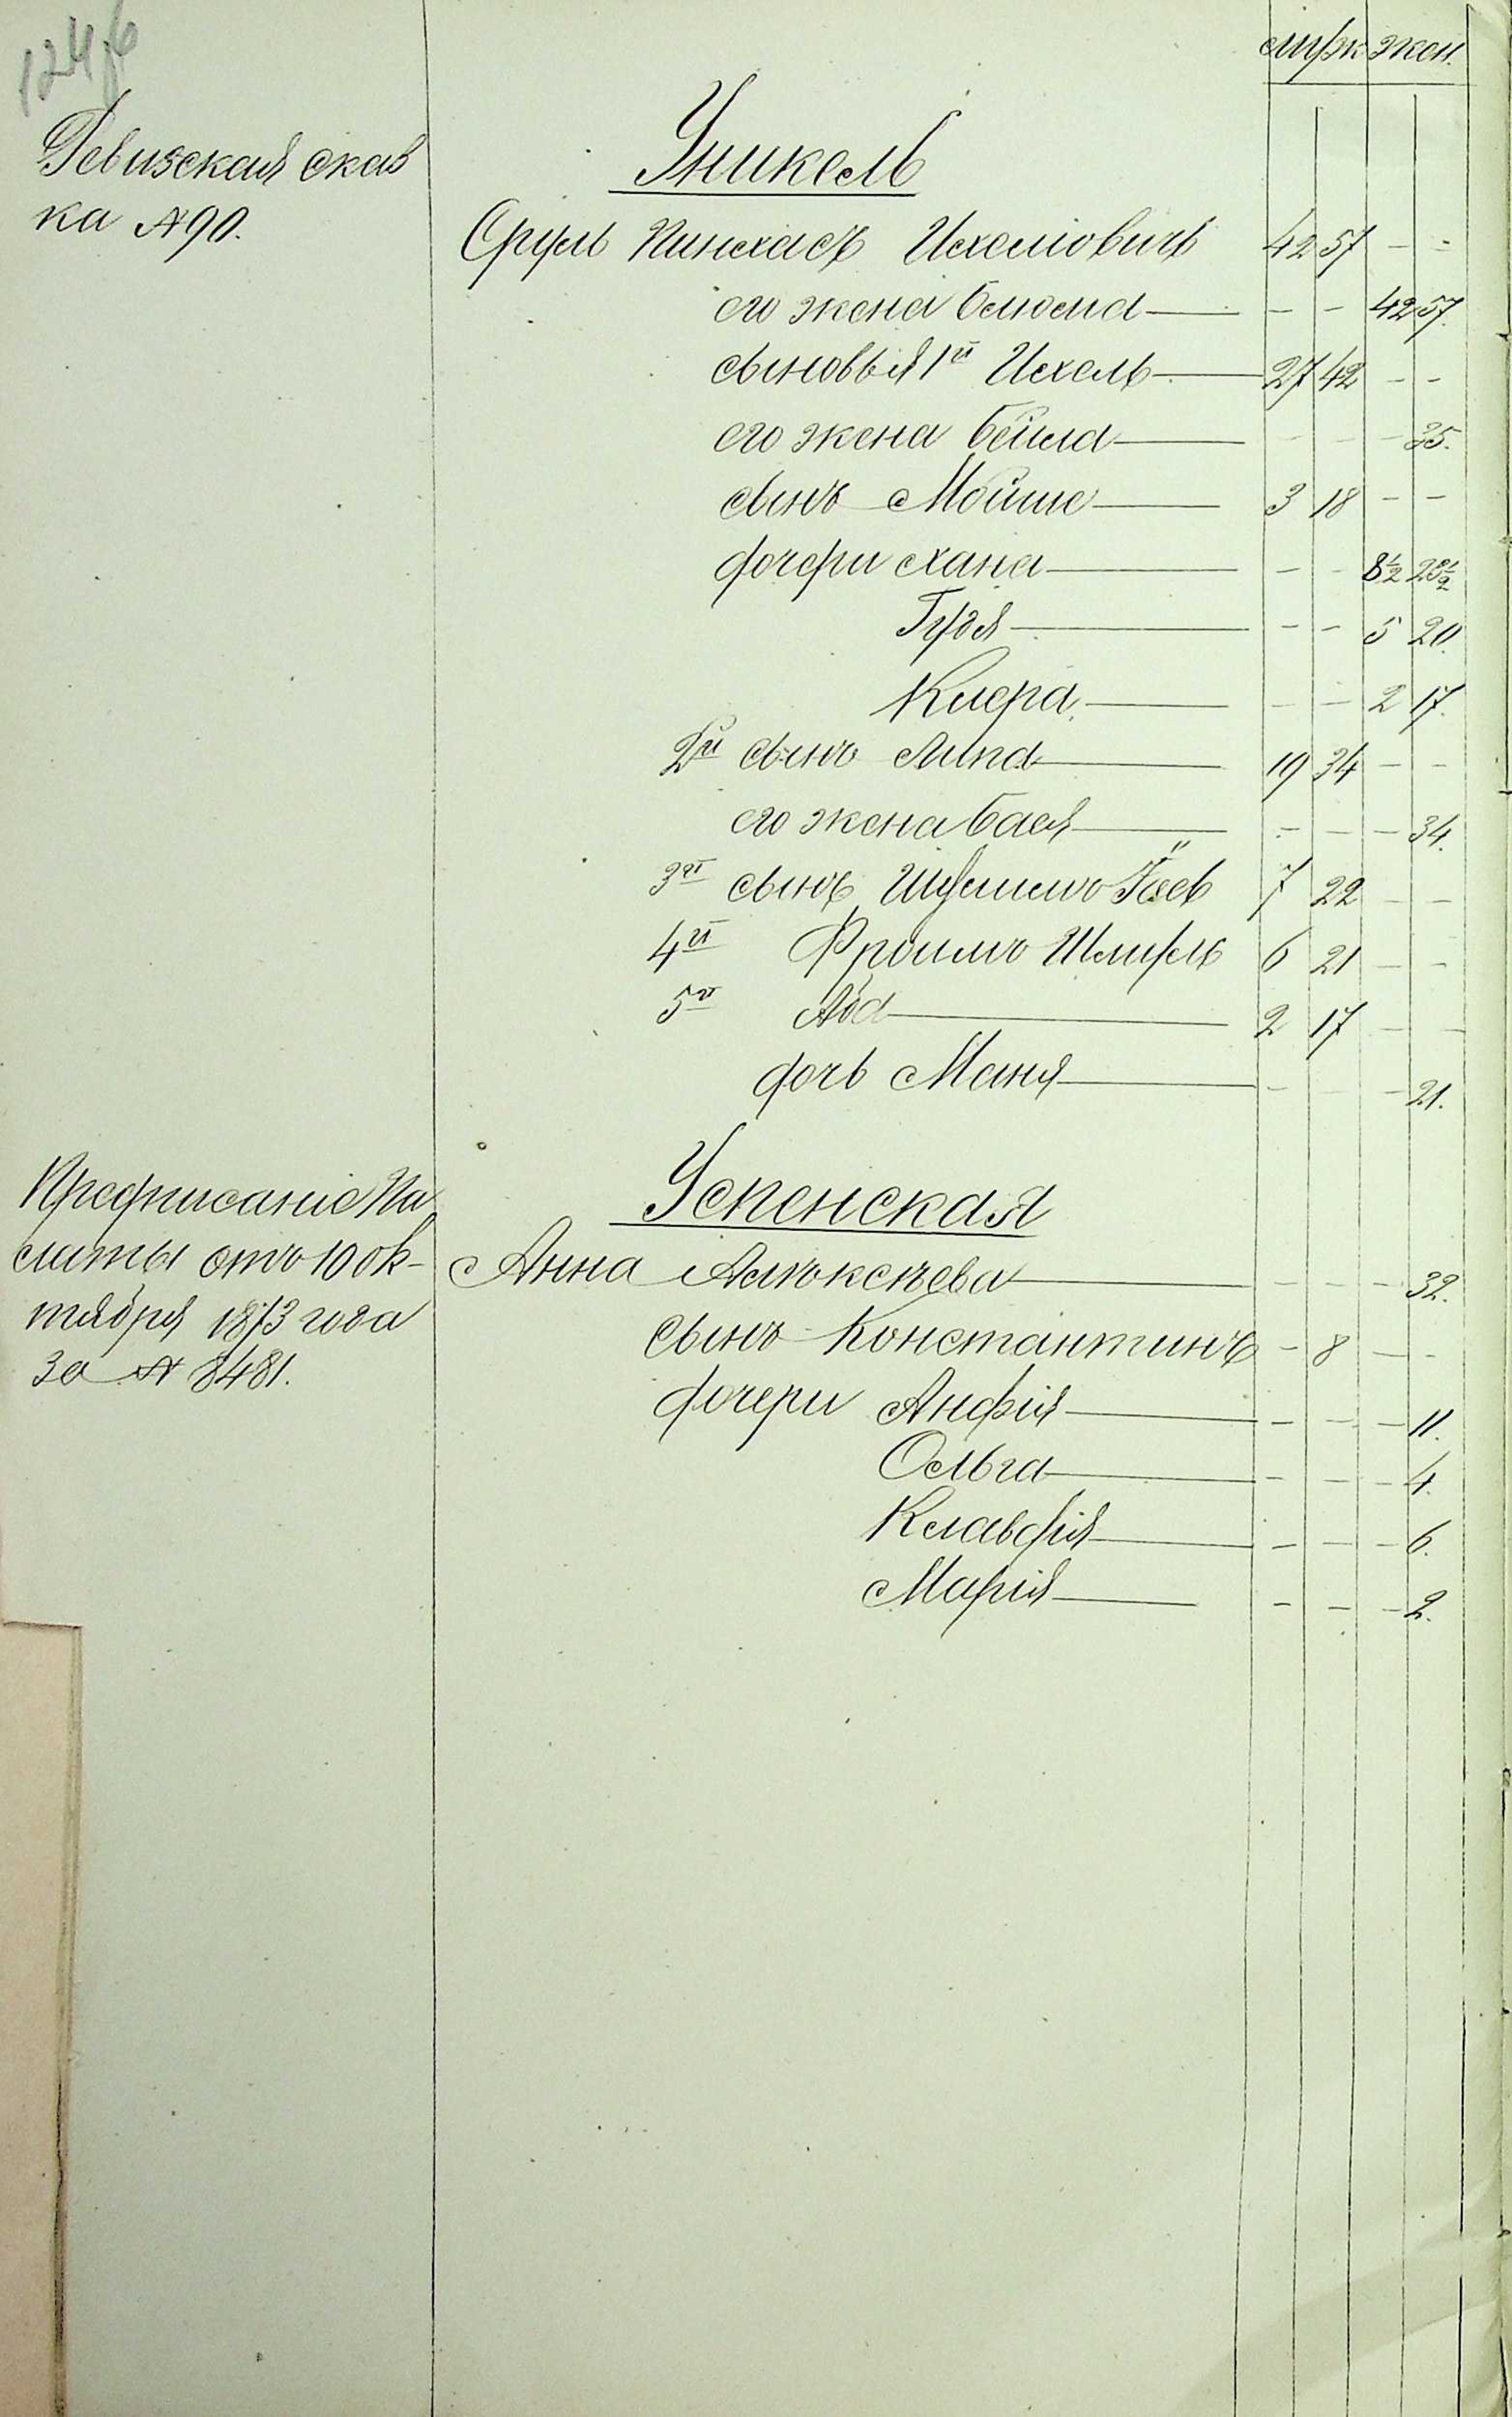 124 об
муж жен.
Ревизская сказ
ка № 90.
Уникель
Сруль Пинхасъ Ихелiовичъ 42 57 - -
его жена Белюма - - 42 57.
сыновья 1й Ихель 27 42 - -
его жена Бейла - - - 35.
сынъ Мойше 3 18 - -
дочери Хана - - 8½ 23½
Гудя - - 5 20.
Клера - - 2 17.
2й сынъ Липа 19 34 - -
его жена Бася - - - 34.
3й сынъ 7 22 - -
4й Фроимъ Шмуль 6 21 - -
5й 2 17 - -
дочь Маня - - - 21.
Предписанiе Па
латы отъ 10 ок-
тября 1873 года
за № 8481.
Успенская
Анна Алѣксѣева - - - 32.
сынъ Константинъ - 8 - -
дочери Анфiя - - - 11.
Ольга - - - 4.
Клавдiя - - - 6.
Марiя - - - 2.